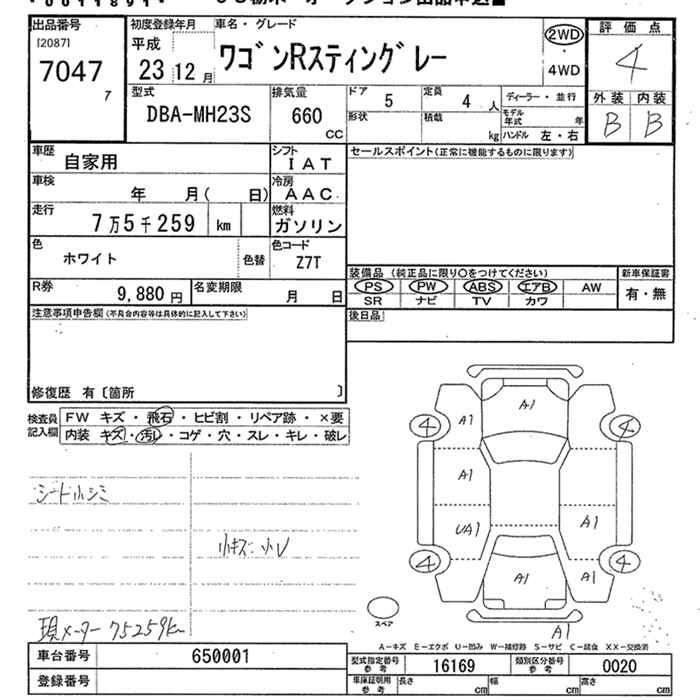 出品番号
[2087]
7047
7
初度登録年月
平成
23 12月
車名・グレード
ワゴンRスティングレー
2WD
4WD
評価点
4
外装 内装
B B
型式
DBA-MH23S
排気量
660
CC
ドア
5
定員
4 人
ディーラー・並行
形状
積載
kg
モデル年式 年
ハンドル 左・右
車歴
自家用
シフト
IAT
セールスポイント(正常に機能するものに限ります)
車検
年 月( 日)
冷房
AAC
走行
7万5千259 km
燃料
ガソリン
色
ホワイト
色替
色コード
Z7T
R券
9,880円
名変期限
月 日
装備品 (純正品に限り○をつけてください)
新車保証書
PS PW ABS エアB AW
有・無
SR ナビ TV カワ
注意事項申告欄(不具合内容等は具体的に記入して下さい)
後日品
修復歴 有〔箇所 〕
検査員記入欄
FW キズ・飛石・ヒビ割・リペア跡・×要
内装 キズ・汚レ・コゲ・穴・スレ・キレ・破レ
シート小シミ
小キズ・小U
現メーター 75259km
A1
A1
4
4
A1
UA1
A1
4
4
A1
A1
A1
スペア
A-キズ E-エクボ U-凹み W-補修跡 S-サビ C-腐食 XX-交換済
車台番号
650001
型式指定番号参考
16169
類別区分番号参考
0020
登録番号
車庫証明用参考
長さ cm
幅 cm
高さ cm